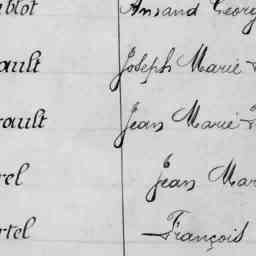 blot Ansand Georg
ault Joseph Marie
ault Jean Marie
rel Jean Mar
rtel François